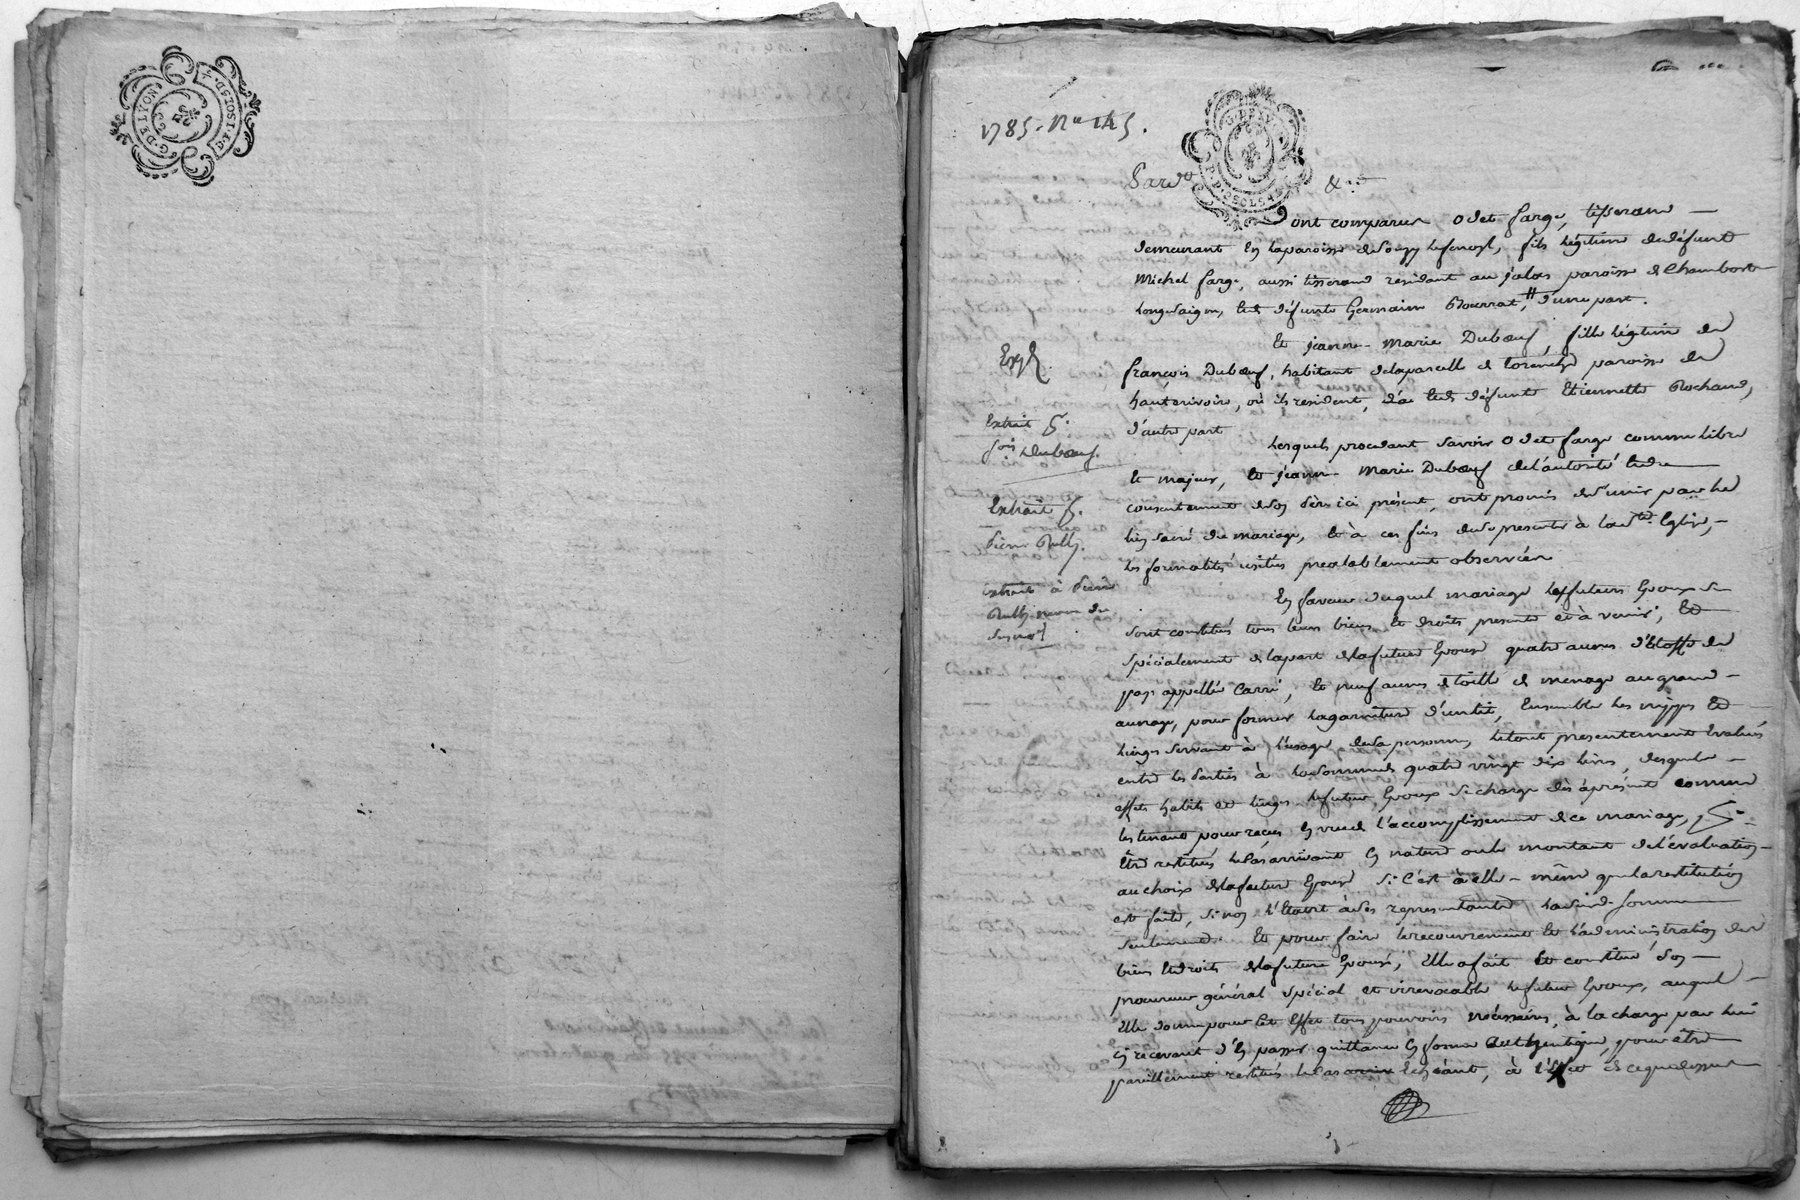 G. DE LYON
4. D. ISOLS. D.
1785. N.o 145.
Pardt &a
Sont comparus Odet farge, tisserand
demeurant en la paroisse de Souzy, fils légitime de défunt
Michel farge, aussi tisserand residant au jalas paroisse de Chambost
longesaigne, et de défunte Germaine Bourrat, d'une part.
Et jeanne-Marie Dubœuf, fille légitime de
françois Dubœuf, habitant de la parcelle de paroisse de
hauterivoire, où ils resident, & de défunte Etiennette Rochand,
d'autre part
Lesquels procedant savoir Odet farge comme libre
et majeur, et jeanne Marie Dubœuf de l'autorité et du
consentement de son père ici présent, ont promis de s'unir par le
lien sacré du mariage, et à ces fins de se presenter à la Ste. Eglise,
les formalités usitées prealablement observées
En faveur duquel mariage les futurs Epoux se
sont constitués tous leurs biens et droits presents et à venir; et
spécialement de la part de la future Epouse quatre aunes d'étoffe du
pays appellée Carré, et neuf aunes de toille de menage au grand
aunage, pour former la garniture d'un lit, Ensemble les nippes et
linges servant à l'usage de sa personne, le tout presentement évalué
entre les Parties à la somme de quatre vingt dix livres, desquels
effets habits et linges le futur Epoux se charge dès à présent comme
les tenant pour reçus en vue de l'accomplissement de ce mariage, p.
Etre restitués le cas arrivant en nature ou le montant de l'évaluation
au choix de la future Epouse si c'est à elle-même que la restitution
est faite, sinon l'étant à ses representants ladite somme
seulement. Et pour faire le recouvrement et l'administration des
biens et droits de la future Epouse, Elle a fait et constitué son
procureur général spécial et irrevocable le futur Epoux, auquel
Elle donne pour cet effet tous pouvoirs nécessaires, à la charge par lui
en recevant d'en passer quittance en forme authentique, pour être
pareillement restitués le cas échéant, à l'effet de ce que dessus
Expé.
Extrait p.
fois Dubœuf.
Extrait p.
Pierre Rully.
extrait à Pierre
Rully